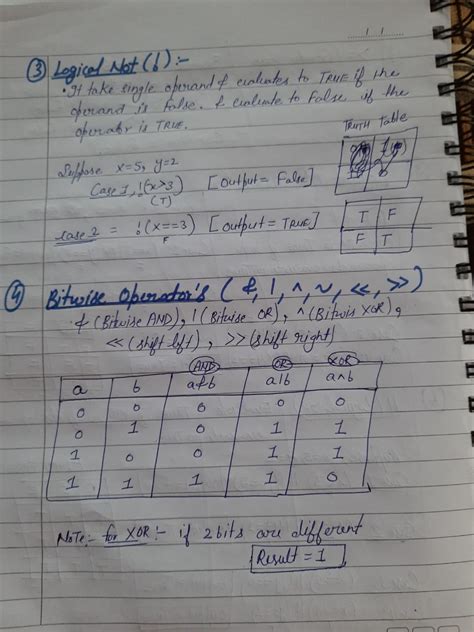 ③ Logical Not (!) :-
• It take single operand & evaluates to TRUE if the
operand is False. & evaluate to False if the
operator is TRUE.
TRUTH Table
Suppose x=5, y=2
Case 1, !(x>3) [Output = False]
(T)
case 2 = !(x==3) [Output = TRUE]
F
T F
F T
④ Bitwise Operator's (&, |, ^, ~, <<, >>)
& (Bitwise AND), | (Bitwise OR), ^ (Bitwis XOR),
<< (shift left), >> (shift right)
AND OR XOR
a b a&b a|b a^b
0 0 0 0 0
0 1 0 1 1
1 0 0 1 1
1 1 1 1 0
NOTE:- for XOR:- if 2 bits are different
Result = 1